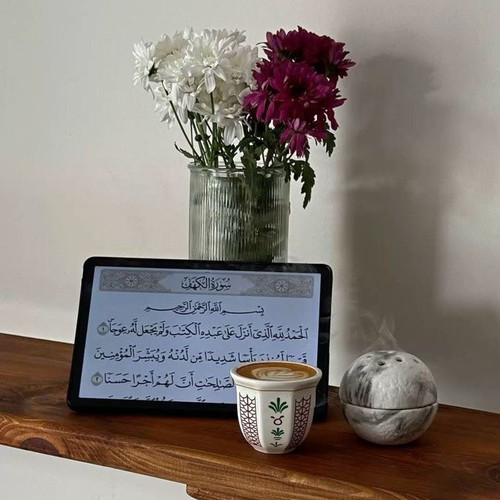 سُورَةُ الكَهْفِ
بِسْمِ اللَّهِ الرَّحْمَٰنِ الرَّحِيمِ
الْحَمْدُ لِلَّهِ الَّذِي أَنْزَلَ عَلَىٰ عَبْدِهِ الْكِتَابَ وَلَمْ يَجْعَل لَّهُ عِوَجًا ۜ ١
قَيِّمًا لِّيُنذِرَ بَأْسًا شَدِيدًا مِّن لَّدُنْهُ وَيُبَشِّرَ الْمُؤْمِنِينَ
الصَّالِحَاتِ أَنَّ لَهُمْ أَجْرًا حَسَنًا ٢